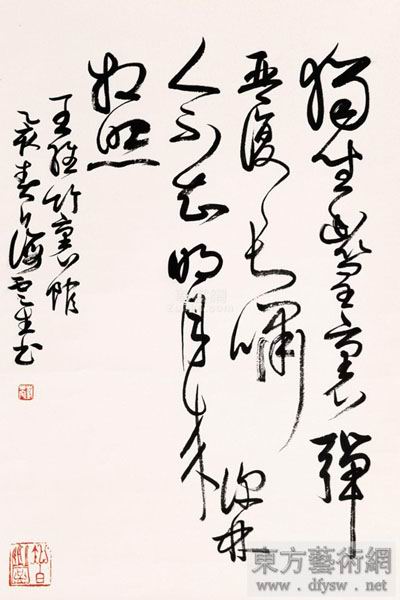 獨坐幽篁裏彈
琴復長嘯深林
人不知明月來
相照
王維竹裏館
乙亥春上海雲生书
東方藝術網
www.dfysw.net